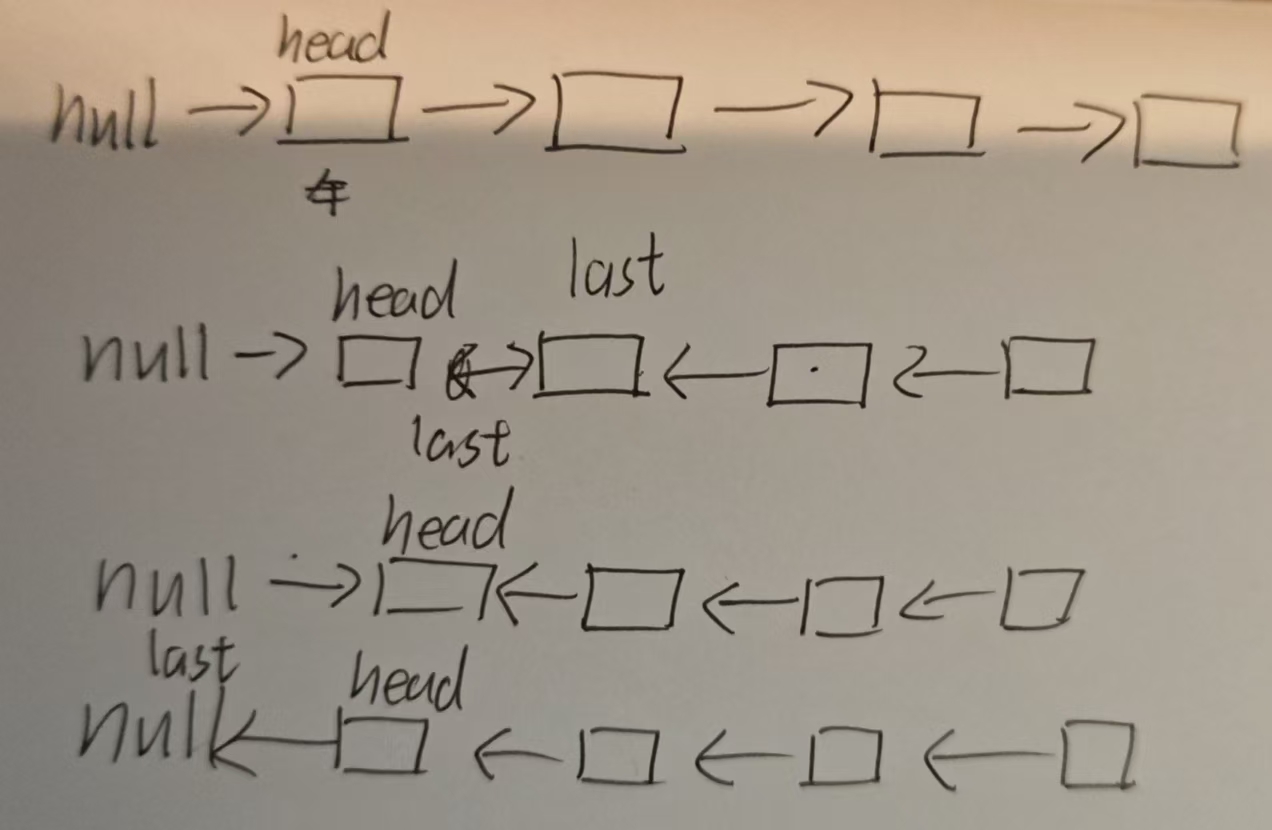 head
null
last
head
null
last
head
null
last
head
null